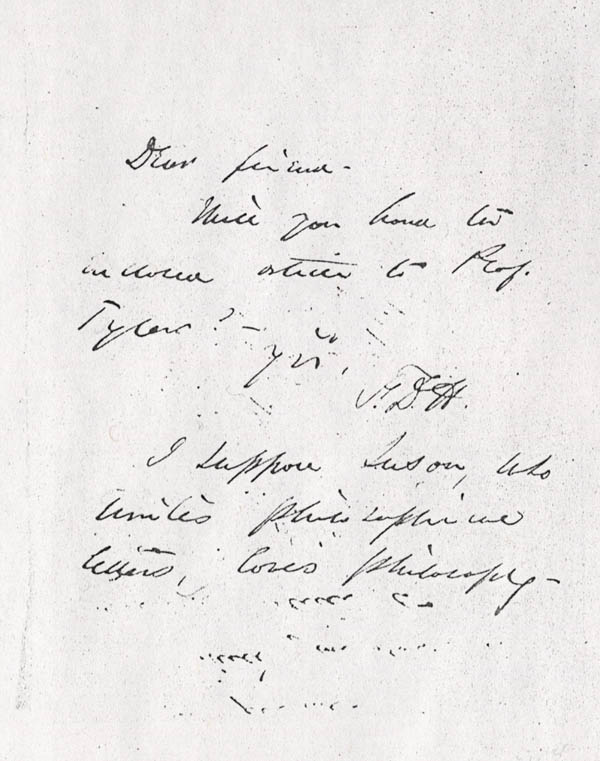 Dear friend -
Will you hand the
enclosed article to Prof.
Tyler? -
Yrs,
F.D.H.
I suppose Susan, who
writes philosophical
letters, loves philosophy -